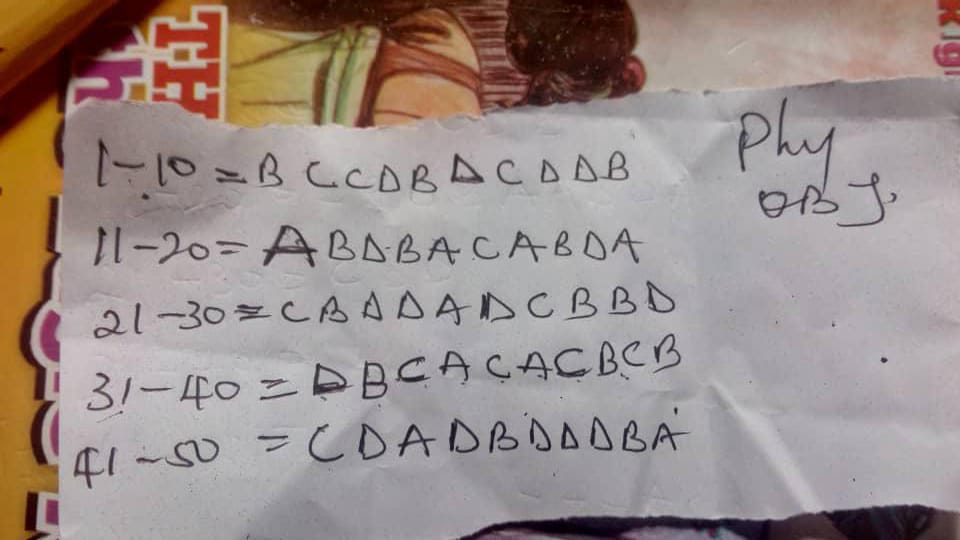 Phy
OBJ.
1-10 = B C C D B D C D D B
11-20 = A B D B A C A B D A
21-30 = C B D D A D C B B D
31-40 = D B C A C A C B C B
41-50 = C D A D B D D D B A
TH